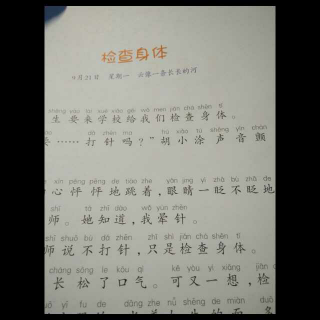 检查身体
9月21日 星期一 云像一条长长的河
shēng yào lái xué xiào gěi wǒ men jiǎn chá shēn tǐ
生要来学校给我们检查身体。
dǎ zhēn ma hú xiǎo tú shēng yīn chàn
要……打针吗？”胡小涂声音颤
xīn pēng pēng de tiào zhe yǎn jīng yì zhǎ bù zhǎ de
心怦怦地跳着，眼睛一眨不眨地
shī tā zhī dào wǒ yùn zhēn
师。她知道，我晕针。
shī shuō bù dǎ zhēn zhǐ shì jiǎn chá shēn tǐ
师说不打针，只是检查身体。
cháng sōng le kǒu qì kě yòu yì xiǎng jiǎn
长松了口气。可又一想，检
yī fu de dōng nǚ shēng de miàn duō